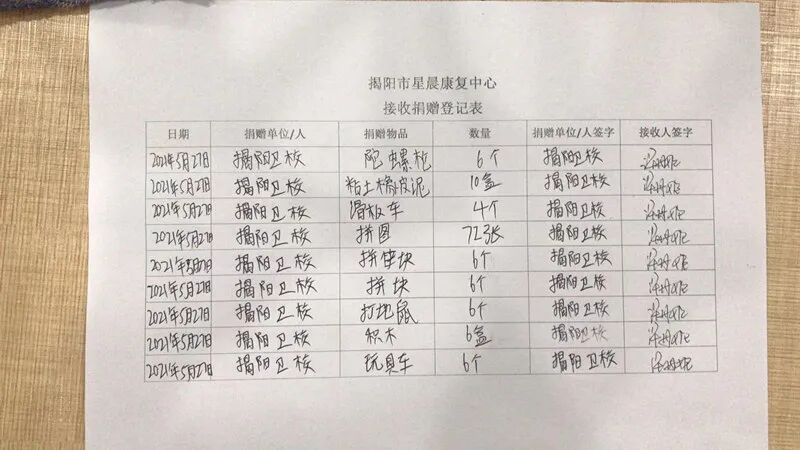 揭阳市星晨康复中心
接收捐赠登记表
日期 捐赠单位/人 捐赠物品 数量 捐赠单位/人签字 接收人签字
2021年5月27日 揭阳卫校 陀螺枪 6个 揭阳卫校
2021年5月27日 揭阳卫校 粘土橡皮泥 10盒 揭阳卫校
2021年5月27日 揭阳卫校 滑板车 4个 揭阳卫校
2021年5月27日 揭阳卫校 拼图 723张 揭阳卫校
2021年5月27日 揭阳卫校 拼垫块 6个 揭阳卫校
2021年5月27日 揭阳卫校 拼块 6个 揭阳卫校
2021年5月27日 揭阳卫校 打地鼠 6个 揭阳卫校
2021年5月27日 揭阳卫校 积木 6盒 揭阳卫校
2021年5月27日 揭阳卫校 玩具车 6个 揭阳卫校